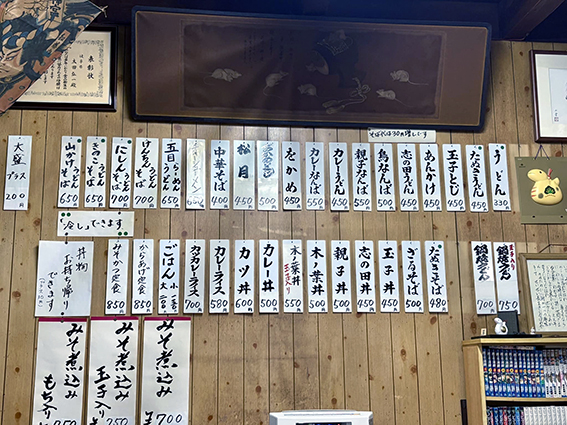 表彰状
そば代は30円増しです
うどん 330
たぬきうどん 450
玉子とじ 450
あんかけ 450
志の田うどん 450
鳥なんば 550
親子なんば 550
カレーうどん 450
カレーなんば 550
をかめ 450
500
松月 450
中華そば 400
五目らーめん うどん 650
けんちん うどん そば 700
にしん うどん そば 700
きつね うどん そば 650
山かけ うどん そば 650
大盛 プラス 200円
冷しできます
玉子入り 鍋焼うどん 750
鍋焼うどん 700
たぬきそば 480
ざるそば 500
玉子丼 450
志の田丼 450
親子丼 500
木ノ葉丼 500
木ノ葉丼 玉子入り 550
カレー丼 500
カツ丼 600
カレーライス 580
カツカレーライス 700
ごはん 大 小
からあげ定食 850
みそかつ定食 850
丼物 お持ち帰りできます
みそ煮込み 700
みそ煮込み 玉子入り 750
みそ煮込み もち入り 750